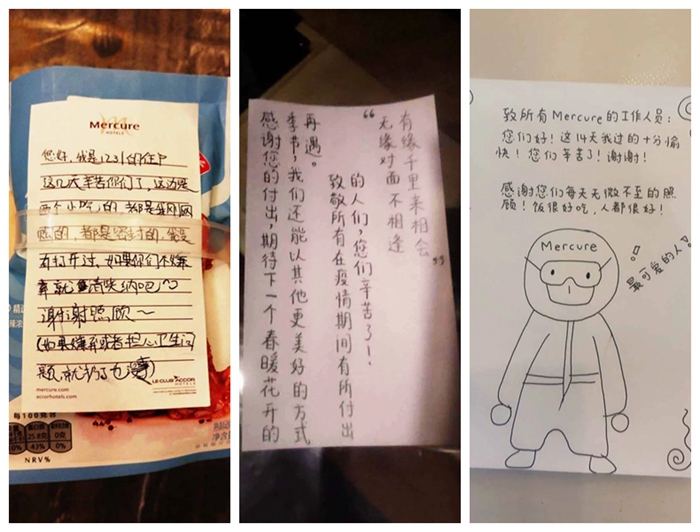 Mercure
HOTELS
您好,我是1231的住户
这几天辛苦你们了,这边是
两个小吃的,都是我刚网
购的,都是密封的,我没
有打开过,如果你们不嫌
弃就请笑纳吧~
谢谢照顾~
(如果嫌弃或者担心卫生问
题,就扔了也)
mercure.com
accorhotels.com
LE CLUB ACCOR
HOTELS
每100克含
25.8g
0克
43%
0%
NRV%
感谢您的付出,期待下一个春暖花开的
季节,我们还能以其他更美好的方式
再遇。
致敬所有在疫情期间有所付出
的人们,您们辛苦了!
“无缘对面不相逢
有缘千里来相会”
致所有Mercure的工作人员:
您们好!这14天我过的十分愉
快!您们辛苦了!谢谢!
感谢您们每天无微不至的照
顾!饭很好吃,人都很好!
Mercure
最可爱的人!